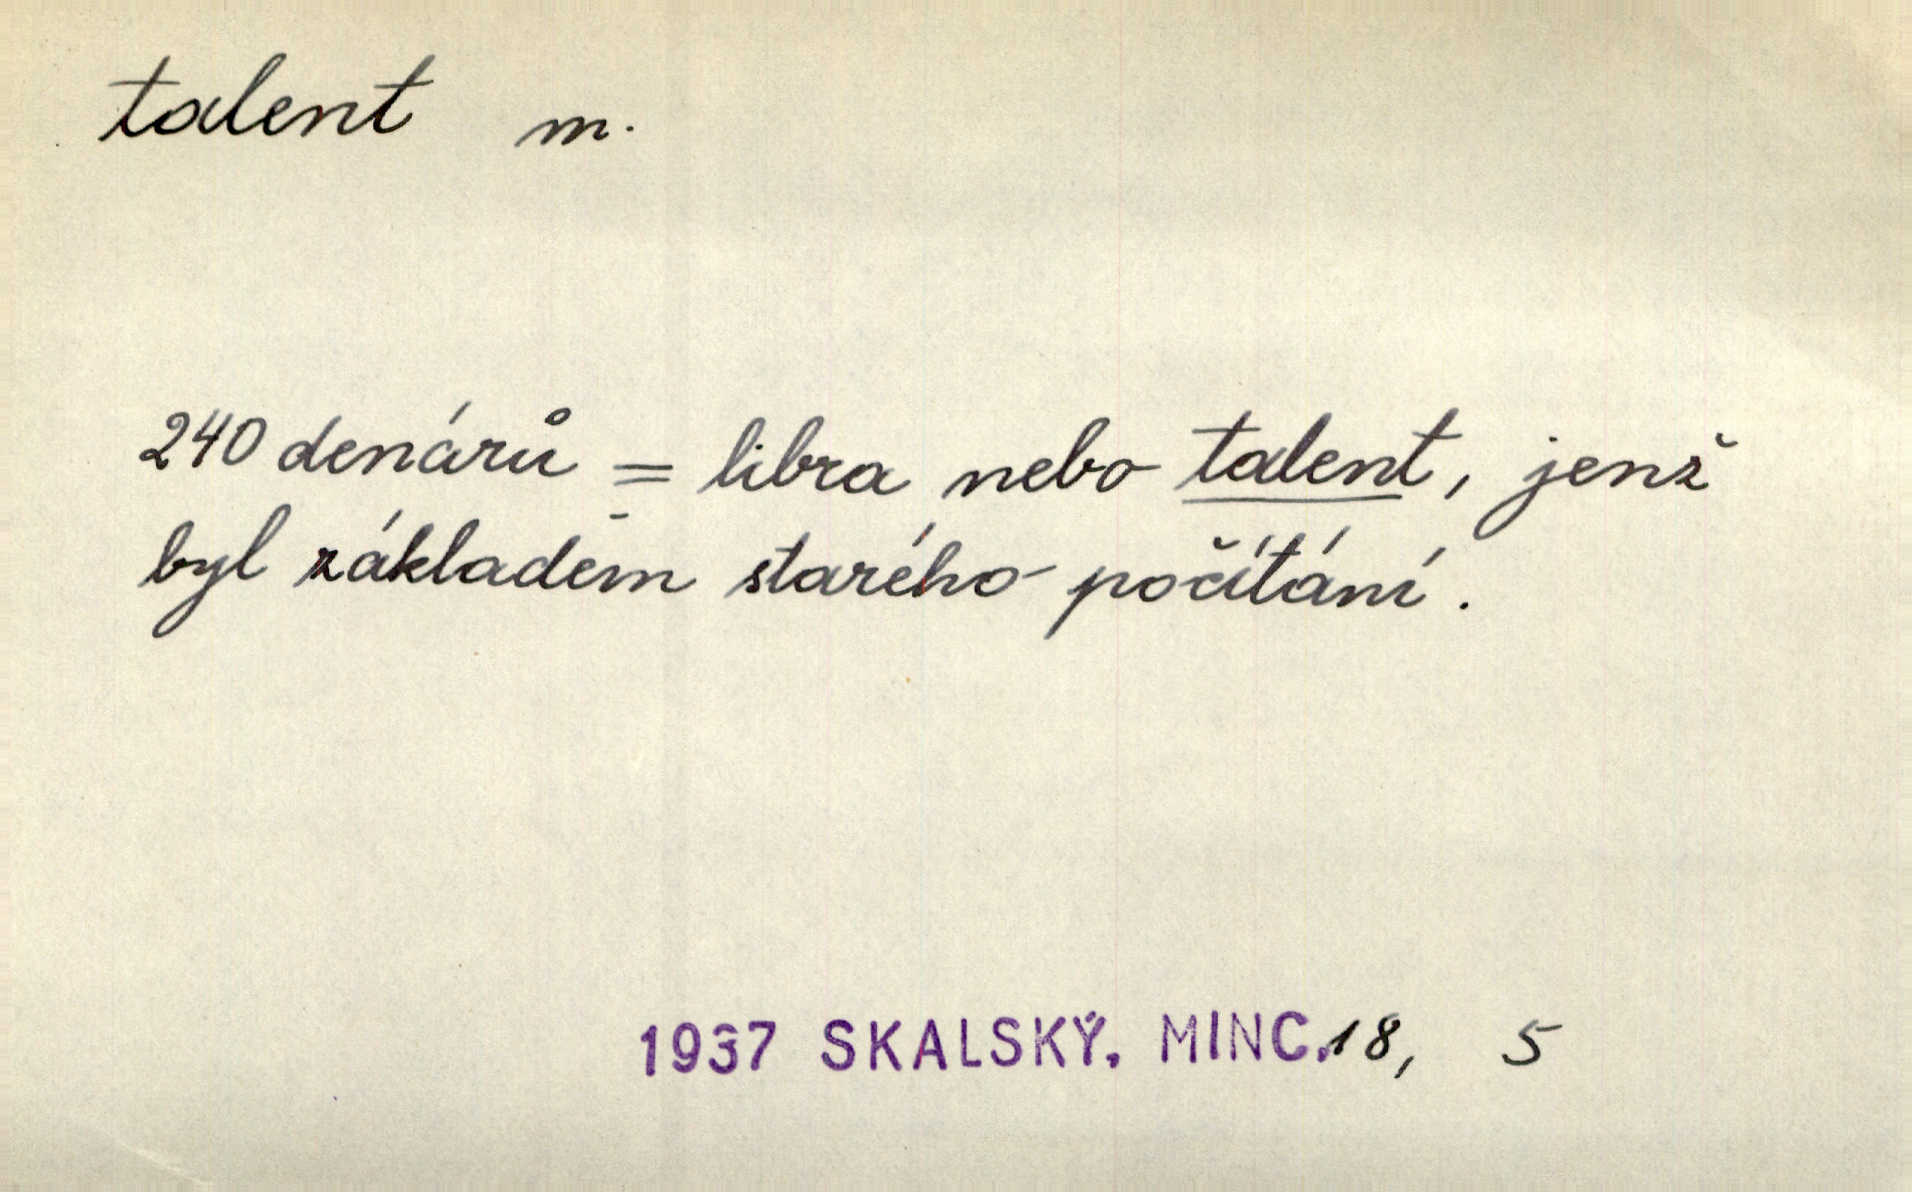 talent m.
240 denárů = libra nebo talent, jenž
byl základem starého počítání.
1937 SKALSKÝ, MINC. 18, 5